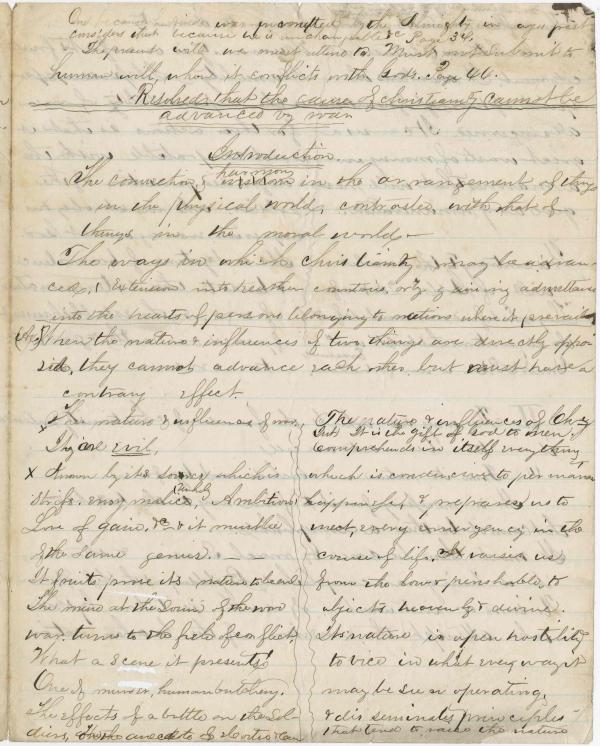 was inconsisted by the Almighty in ages past
considers that because he is unchangable &c Page 34.
The means wile we must attend to. Must not submit to
human will, when it conflicts with Gods. Page 46.
Resolved: that the cause of christianity cannot be
advanced by war
Introduction.
harmony
The connection, in the arrangement of things
in the physical world, contrasted with that of
things in the moral world
The ways in which Christianity may be advan-
ced, 1 Extension into heathen countries, or by gaining admittance
into the hearts of persons belonging to nations where it prevails
When the nature & influences of two things are directly oppo
site, they cannot advance each other but must have a
contrary effect.
The nature & influences of war.
They are evil.
x Known by its source, which is
Strife, envy, malice, & Ambition
Love of gain, &c & it must be
of the same genus. — —
It fruits prove its nature to be evil
The mind at the sound of the word
war, turns to the field of conflict.
What a scene it presents
One of murder, human butchery.
The effects of a battle on the Sol-
diers, anecdote of
The nature & influences of Chry
It is the gift of God to men.
Comprehends in itself everything
which is conducive to perman
happiness, & prepares us to
meet, every emergency in the
course of life. It raises us
from the low & perishable, to
objects heavenly & divine.
Its nature is open hostility
to vice in what every way it
may be seen operating,
& disseminates principles
that tend to raise the nature